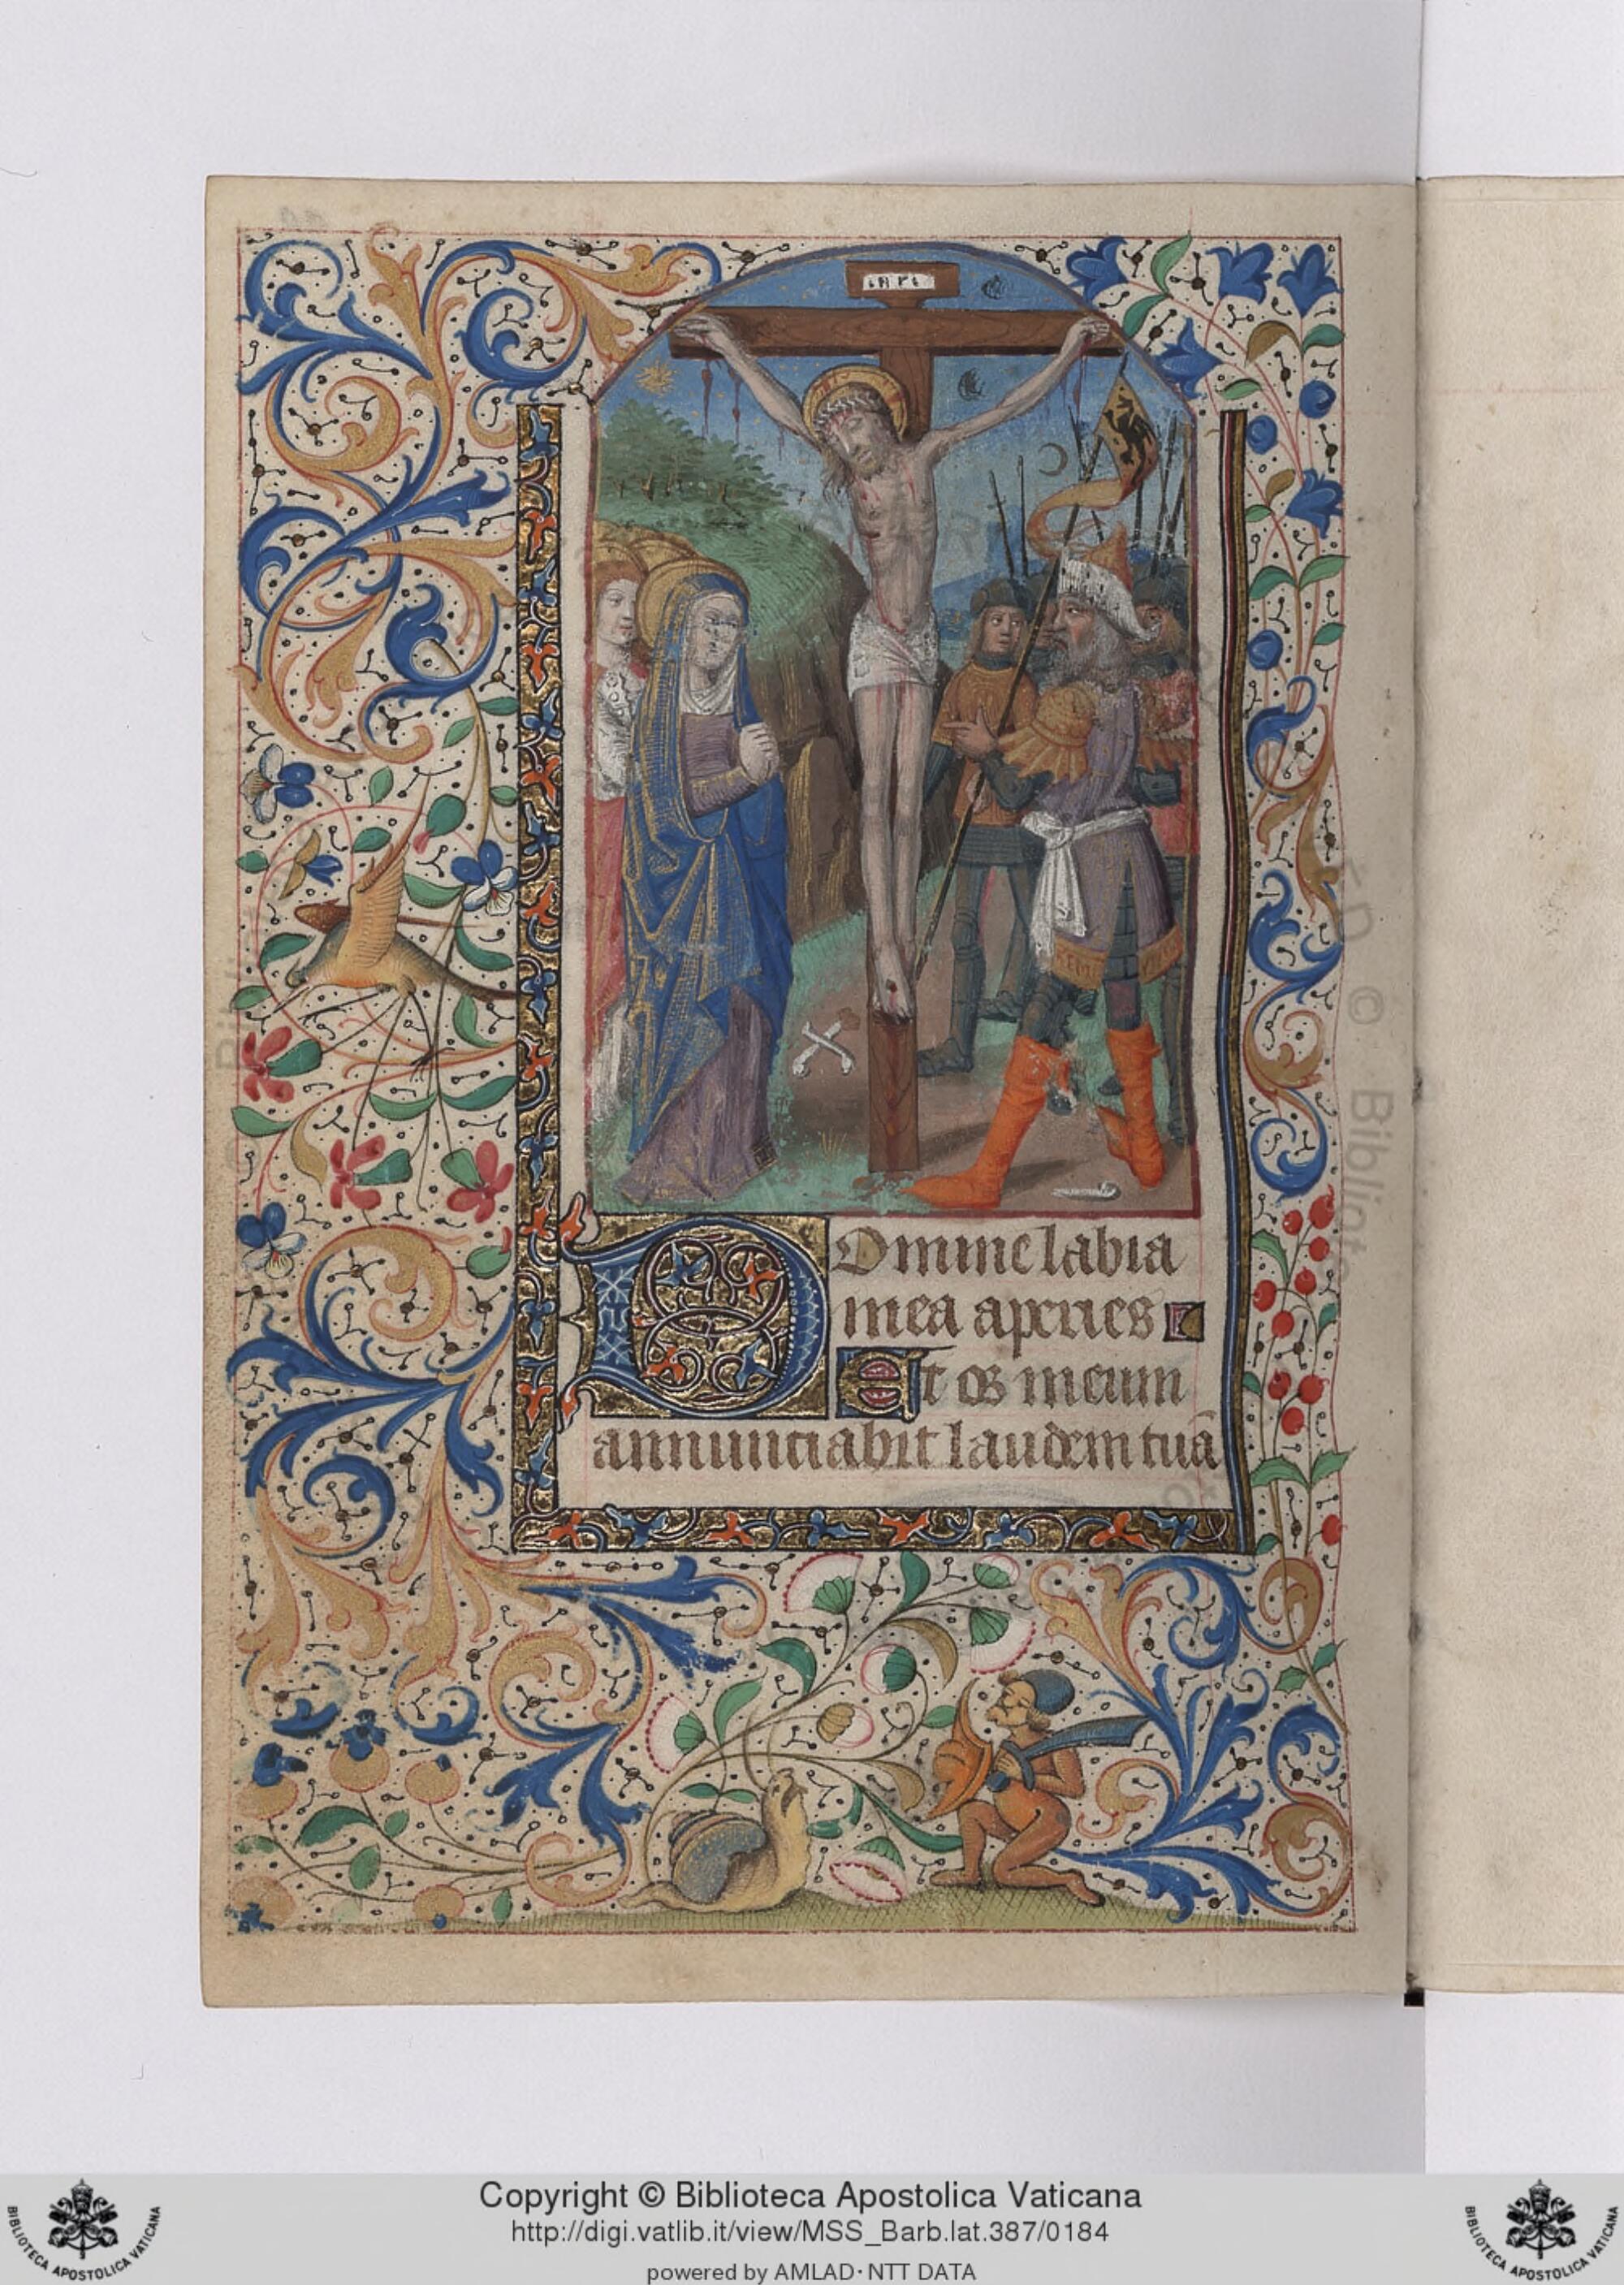 INRI
Domine labia
mea aperies
Et os meum
annunciabit laudem tuã
Copyright © Biblioteca Apostolica Vaticana
http://digi.vatlib.it/view/MSS_Barb.lat.387/0184
powered by AMLAD·NTT DATA
BIBLIOTECA APOSTOLICA VATICANA
BIBLIOTECA APOSTOLICA VATICANA